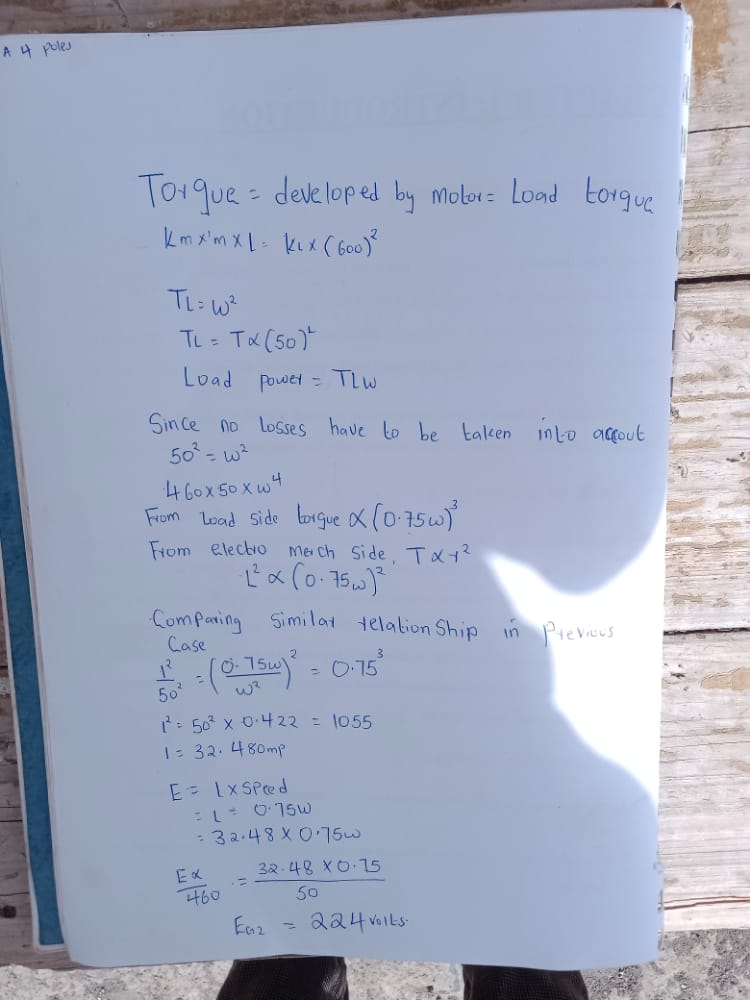 A 4 poles
Torque = developed by motor = Load torque
Km x 'm x L = KL x (600)²
TL = W²
TL = T∝(50)²
Load power = TLW
Since no losses have to be taken into accout
50² = w²
460 x 50 x w⁴
From Load side torque ∝ (0.75w)³
From electro Merch side, T ∝ r²
L² ∝ (0.75w)²
Comparing similar relationship in Previous
Case
I²/50² = (0.75w/w²)² = 0.75³
I² = 50² x 0.422 = 1055
I = 32.480mp
E = L x speed
= L = 0.75w
= 32.48 x 0.75w
E∝/460 = 32.48 x 0.75/50
EG2 = 224 volts.